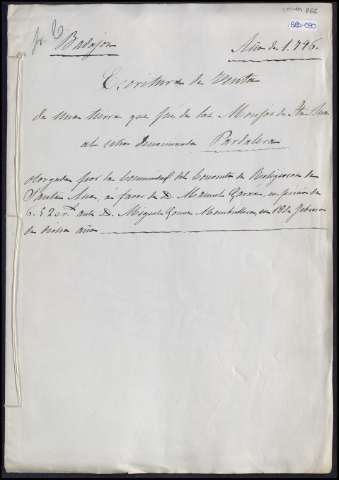 Badajoz
Año de 1.796.
Escritura de Venta
de una tierra que fue de las Monjas de Sta. Ana
al sitio denominado Pardalera
otorgada por la Comunidad del Convento de Religiosas de
Santa Ana, a favor de D. Manuel Garcia, en precio de
6.520 rs. ante D. Miguel en 18 de Febrero
de dicho año